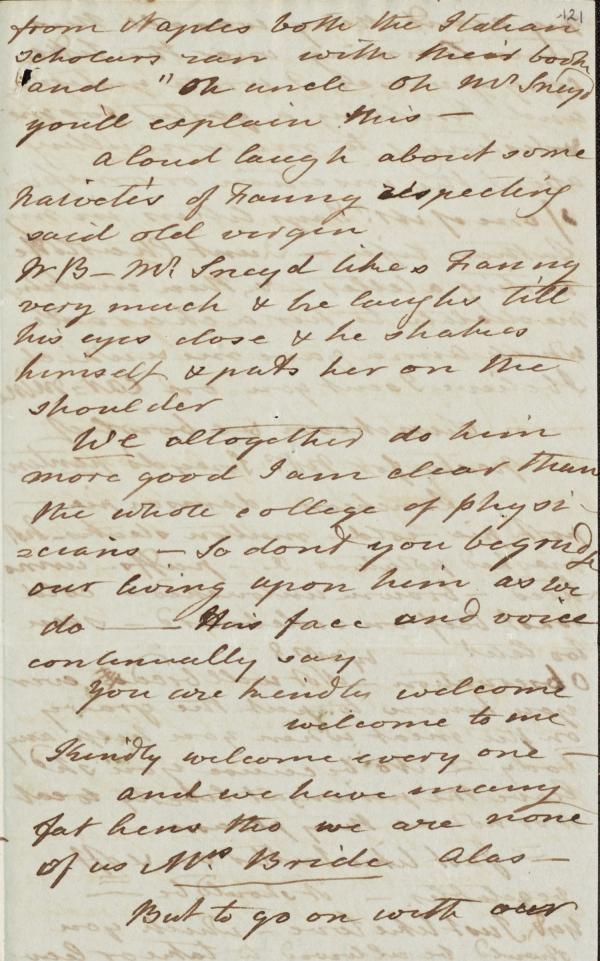 121
from Naples both the Italian
scholars ran with their book
and "Oh uncle Oh Mr Sneyd
you'll explain this —
a loud laugh about some
naivetés of Fanny respecting
said old virgin
NB — Mr Sneyd likes Fanny
very much & he laughs till
his eyes close & he shakes
himself & pats her on the
shoulder
We altogether do him
more good I am clear than
the whole college of physi-
cians — So dont you begrudge
our living upon him as we
do — His face and voice
continually say
You are kindly welcome
welcome to me
Kindly welcome every one —
and we have many
fat hens tho we are none
of us Mrs Bride Alas —
But to go on with our